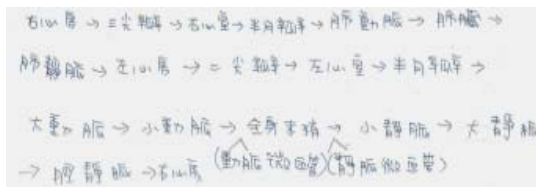 右心房 → 三尖瓣 → 右心室 → 半月瓣 → 肺動脈 → 肺臟 →
肺靜脈 → 左心房 → 二尖瓣 → 左心室 → 半月瓣 →
大動脈 → 小動脈 → 全身末梢 → 小靜脈 → 大靜脈
→ 腔靜脈 → 右心房 (動脈微血管)(靜脈微血管)